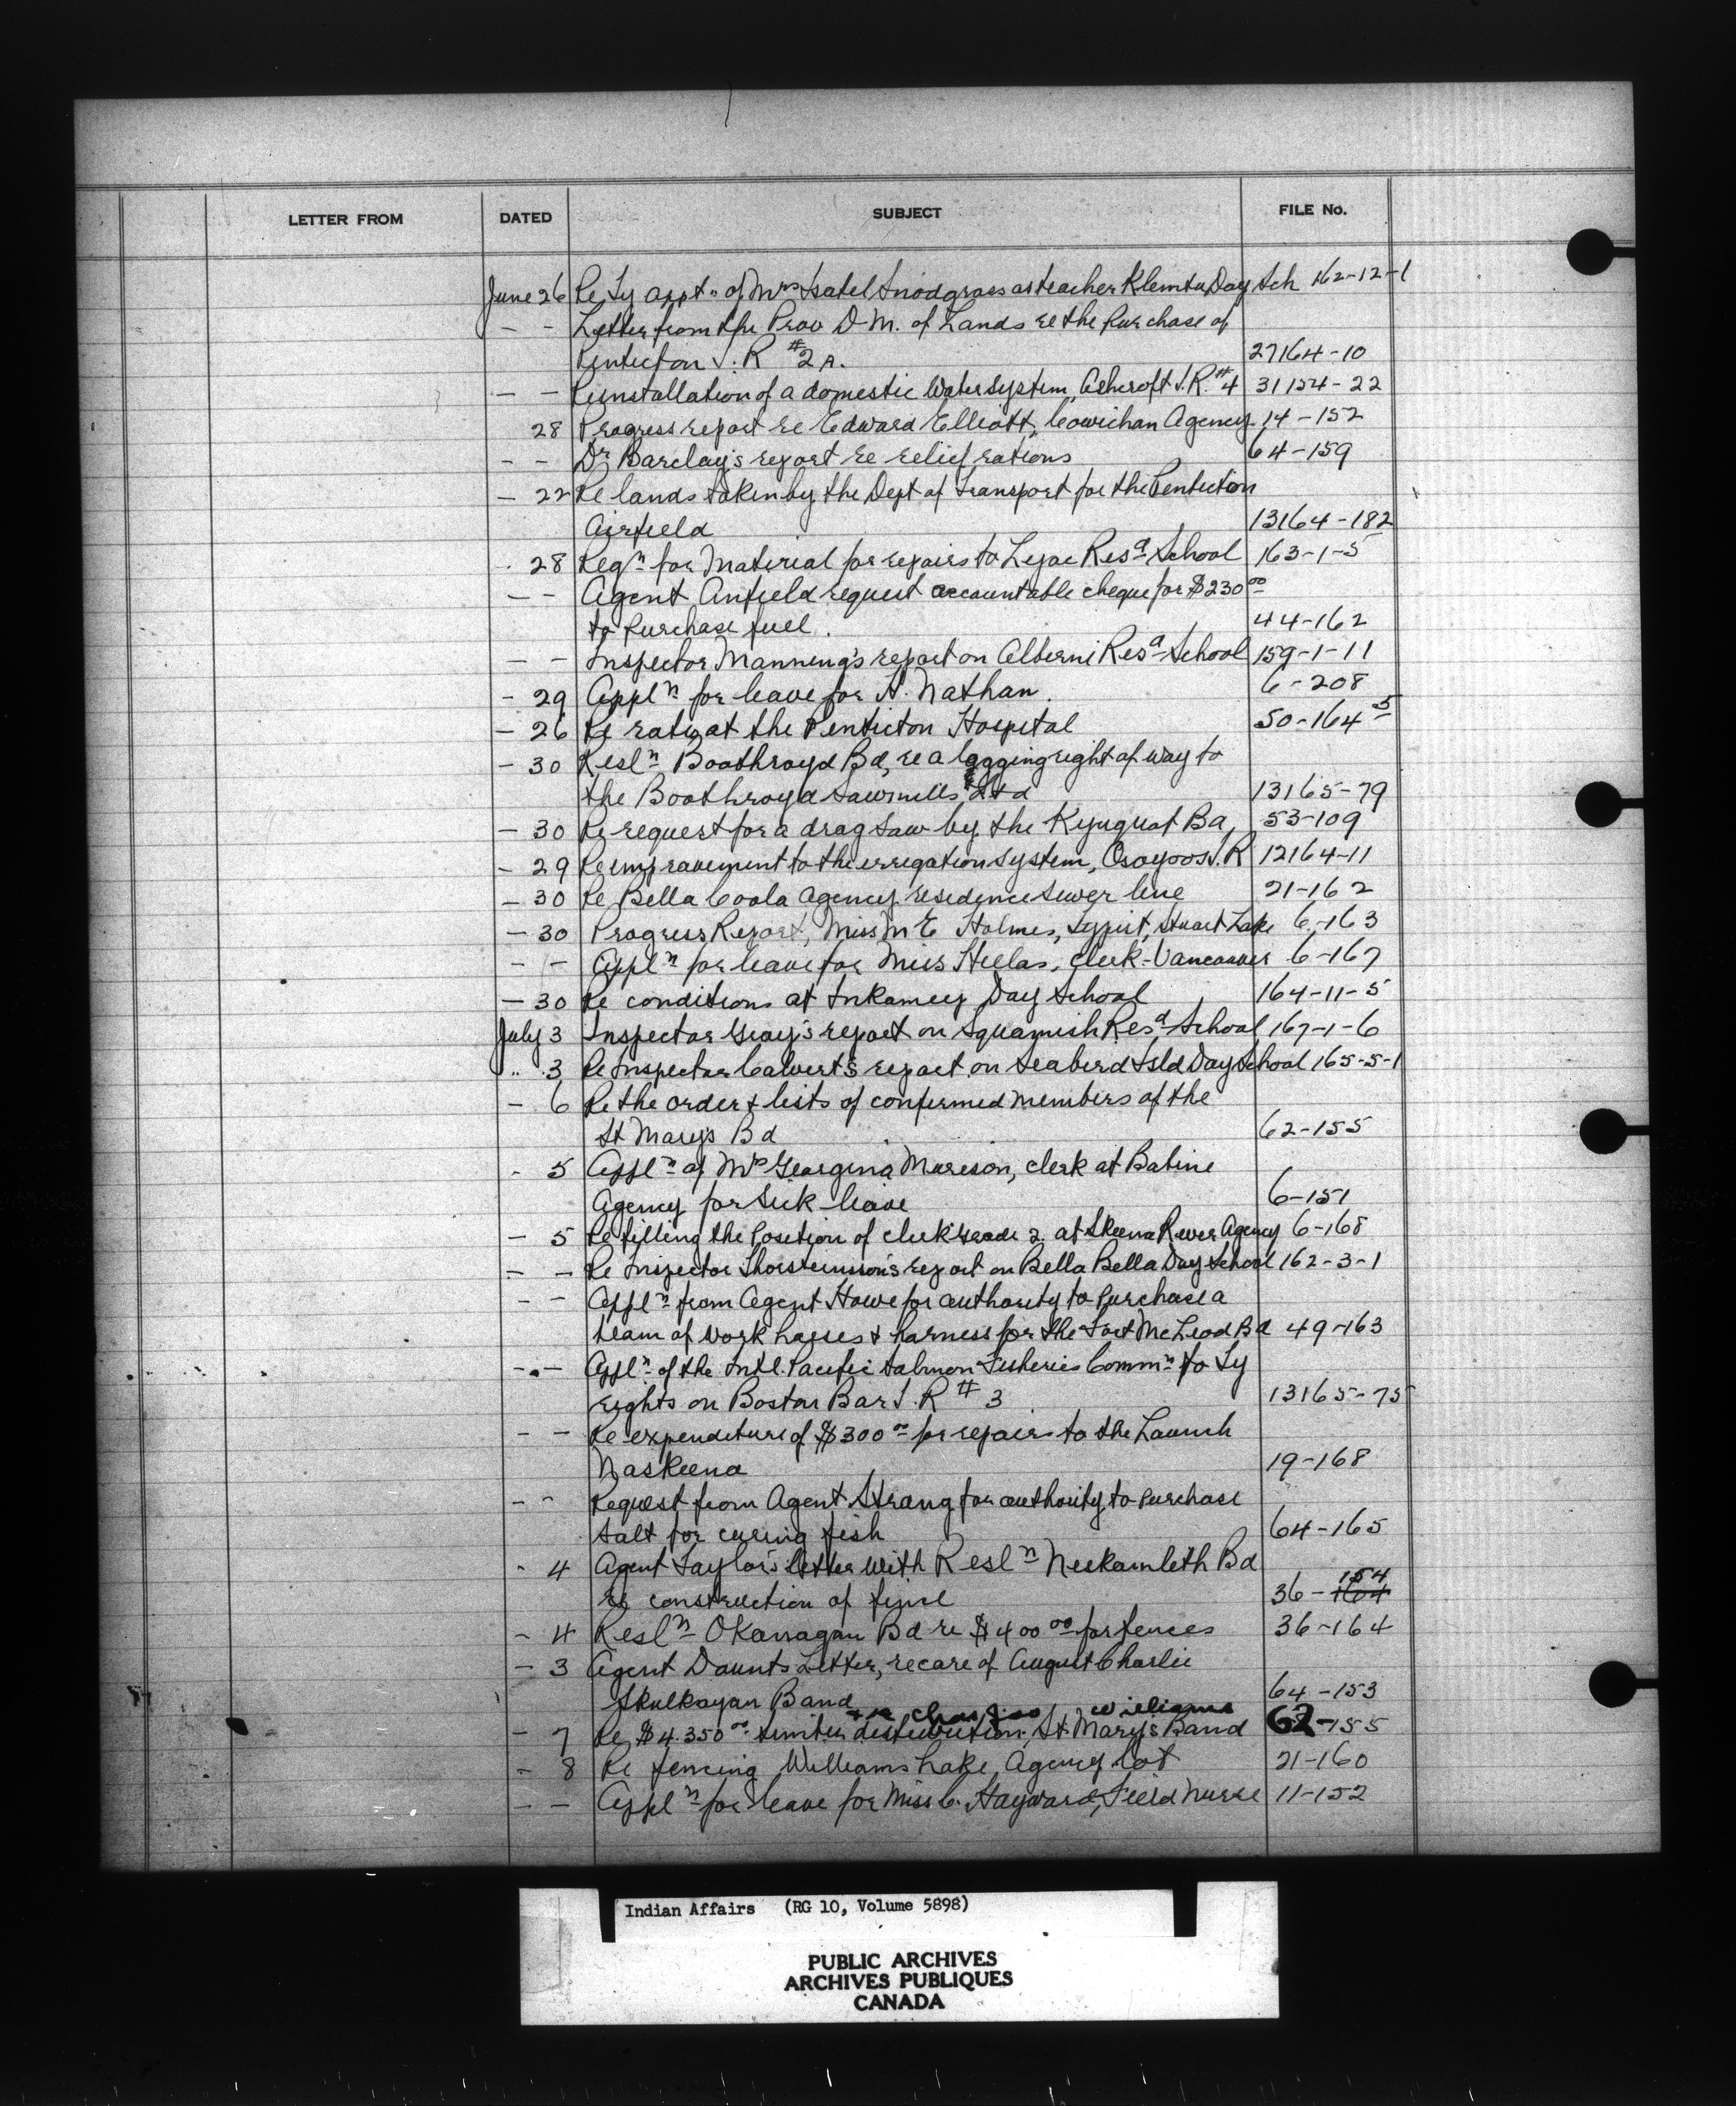 LETTER FROM DATED SUBJECT FILE No.
June 26 Re Ty appt. of Mrs Isabel Snodgrass as teacher Klemtu Day Sch 162-12-1
- - Letter from the Prov D-M. of Lands re the Purchase of
Penticton I.R #2A. 27164-10
- - Re installation of a domestic Water System, Ashcroft I.R. #4 31154-22
28 Progress report re Edward Elliott, Cowichan Agency. 14-152
- - Dr Barclay's report re relief rations 64-159
- 22 Re lands taken by the Dept of Transport for the Penticton
Airfield 13164-182
- 28 Reqn for Material for repairs to Lejac Resd School 163-1-5
- - Agent Anfield request accountable cheque for $230 00
to Purchase fuel. 44-162
- - Inspector Manning's report on Alberni Resd School 159-1-11
- 29 Appln for leave for H. Nathan. 6-208
- 26 Re rates at the Penticton Hospital 50-164 5
- 30 Resln Boothroyd Bd, re a logging right of way to
the Boothroyd Sawmills Ltd 13165-79
- 30 Re request for a drag saw by the Kyuquot Bd, 53-109
- 29 Re improvement to the irrigation system, Osoyoos I.R 12164-11
- 30 Re Bella Coola Agency residence sewer line 21-162
- 30 Progress Report, Miss M E Holmes, Typist, Stuart Lake 6-163
- - Appln for leave for Miss Hellas, Clerk-Vancouver 6-167
- 30 Re conditions at Inkameep Day School 164-11-5
July 3 Inspector Gray's report on Squamish Resd School 167-1-6
" 3 Re Inspector Calvert's report on Seabird Isld Day School 165-5-1
- 6 Re the order & lists of confirmed members of the
St Mary's Bd 62-155
- 5 Appln of Mrs Georgina Morison, clerk at Babine
Agency for Sick leave 6-151
- 5 Re filling the Position of clerk Grade 2. at Skeena River Agency 6-168
- - Re Inspector Thorsteinsson's report on Bella Bella Day School 162-3-1
- - Appln from Agent Howe for authority to Purchase a
team of work horses & harness for the Fort McLeod Bd 49-163
- - Appln of the Intl. Pacific Salmon Fisheries Commn to Ty
rights on Boston Bar I.R #3 13165-75
- - Re expenditure of $300 00 for repairs to the Launch
Naskeena 19-168
- - Request from Agent Strang for authority to Purchase
Salt for curing fish 64-165
- 4 Agent Taylor's letter with Resln Neskainlith Bd
154
Re construction of fence 36-164
- 4 Resln Okanagan Bd re $400 00 for fences 36-164
- 3 Agent Daunts Letter, re care of August Charlie
Skulkayan Band 64-153
+ re Chas Geo Williams
- 7 Re $4.350 00 timber distribution, St Mary's Band 62-155
- 8 Re fencing Williams Lake Agency lot 21-160
- - Appln for leave for Miss C. Hayward, Field Nurse 11-152
Indian Affairs (RG 10, Volume 5898)
PUBLIC ARCHIVES
ARCHIVES PUBLIQUES
CANADA